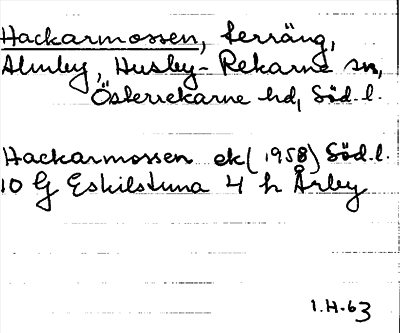 Hackarmossen, terräng,
Almby, Husby-Rekarne sn,
Österrekarne hd, Söd. l.
Hackarmossen ek (1958) Söd. l.
10 G Eskilstuna 4 h Årby
1.H.63